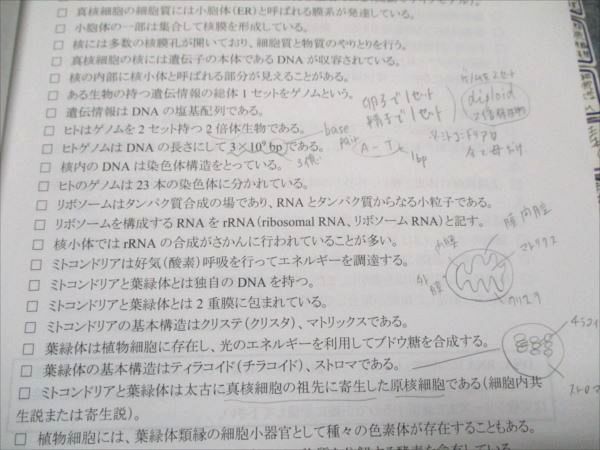 □ 真核細胞の細胞質には小胞体(ER)と呼ばれる膜系が発達している。
□ 小胞体の一部は集合して核膜を形成している。
□ 核には多数の核膜孔が開いており、細胞質と物質のやりとりを行う。
□ 真核細胞の核には遺伝子の本体である DNA が収容されている。
□ 核の内部に核小体と呼ばれる部分が見えることがある。
□ ある生物の持つ遺伝情報の総体 1 セットをゲノムという。
卵子で1セット
精子で1セット
diploid
□ 遺伝情報は DNA の塩基配列である。
□ ヒトはゲノムを 2 セット持つ 2 倍体生物である。
base
pair
□ ヒトゲノムは DNA の長さにして 3×10⁹ bp である。
A-T
1bp
□ 核内の DNA は染色体構造をとっている。
□ ヒトのゲノムは 23 本の染色体に分かれている。
□ リボソームはタンパク質合成の場であり、RNA とタンパク質からなる小粒子である。
□ リボソームを構成する RNA を rRNA(ribosomal RNA、リボソーム RNA)と記す。
□ 核小体では rRNA の合成がさかんに行われていることが多い。
□ ミトコンドリアは好気(酸素)呼吸を行ってエネルギーを調達する。
内膜
外膜
膜間腔
マトリクス
クリステ
□ ミトコンドリアと葉緑体とは独自の DNA を持つ。
□ ミトコンドリアと葉緑体とは 2 重膜に包まれている。
□ ミトコンドリアの基本構造はクリステ(クリスタ)、マトリックスである。
□ 葉緑体は植物細胞に存在し、光のエネルギーを利用してブドウ糖を合成する。
□ 葉緑体の基本構造はティラコイド(チラコイド)、ストロマである。
チラコイ
ストロマ
□ ミトコンドリアと葉緑体とは太古に真核細胞の祖先に寄生した原核細胞である(細胞内共
生説または寄生説)。
□ 植物細胞には、葉緑体類縁の細胞小器官として種々の色素体が存在することもある。